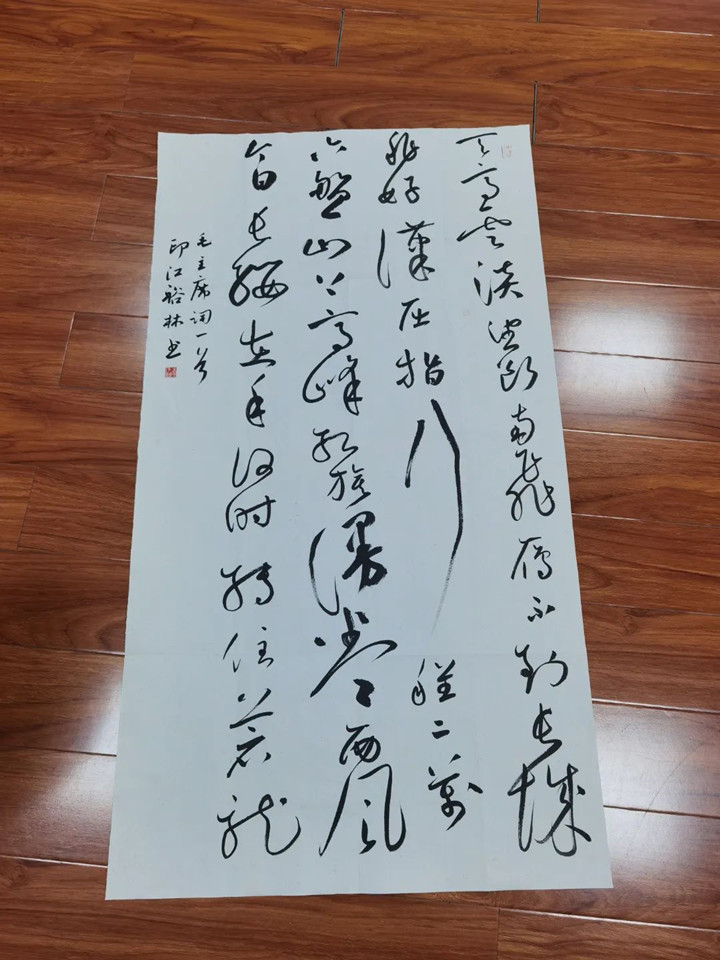 天高云淡望断南飞雁不到长城
非好漢屈指行程二萬
六盤山上高峰红旗漫卷西风
今日长缨在手何时缚住苍龙
毛主席词一首
印江林书